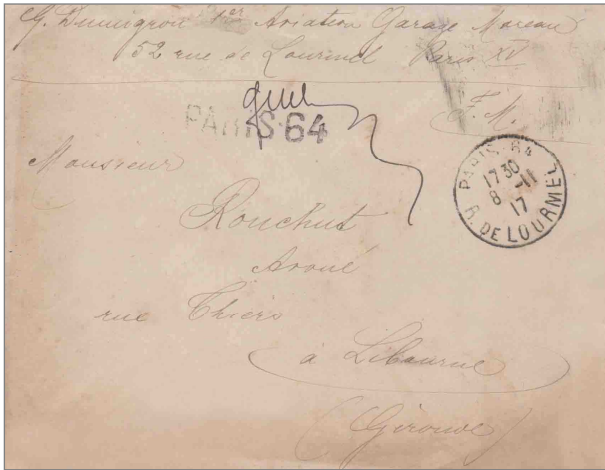 G. Dumigron 1er Aviation Garage Moreau
52 rue de Lourmel Paris XV
F. M.
PARIS 64
Monsieur
PARIS 64
17 30
8 - 11
17
R. DE LOURMEL
Rouchut
Avoué
rue Thiers
à Libourne
(Gironde)